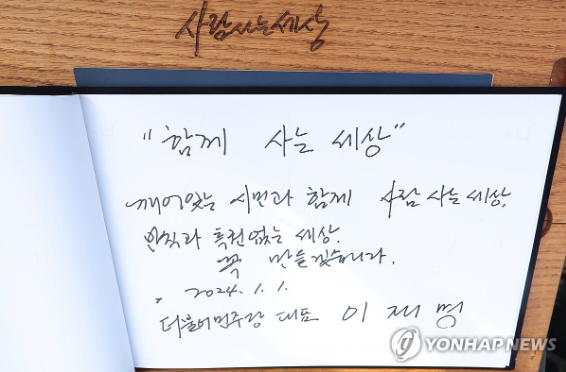 사람사는세상
"함께 사는 세상"
깨어있는 시민과 함께 사람 사는 세상,
반칙과 특권 없는 세상.
꼭 만들겠습니다.
2024. 1. 1.
더불어민주당 대표 이재명
YONHAPNEWS